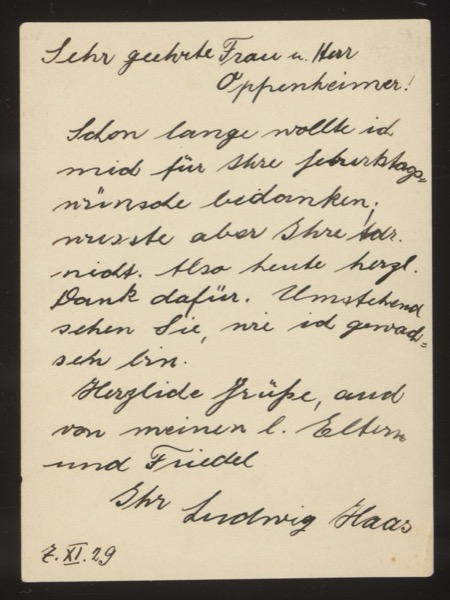 Sehr geehrte Frau u. Herr
Oppenheimer!
Schon lange wollte ich
mich für Ihre Geburtstags=
wünsche bedanken,
wusste aber Ihre Adr.
nicht. Also heute herzl.
Dank dafür. Umstehend
sehen Sie, wie ich gewach=
sen bin.
Herzliche Grüße, auch
von meinen l. Eltern
und Friedel
Ihr Ludwig Haas
7. XI. 29